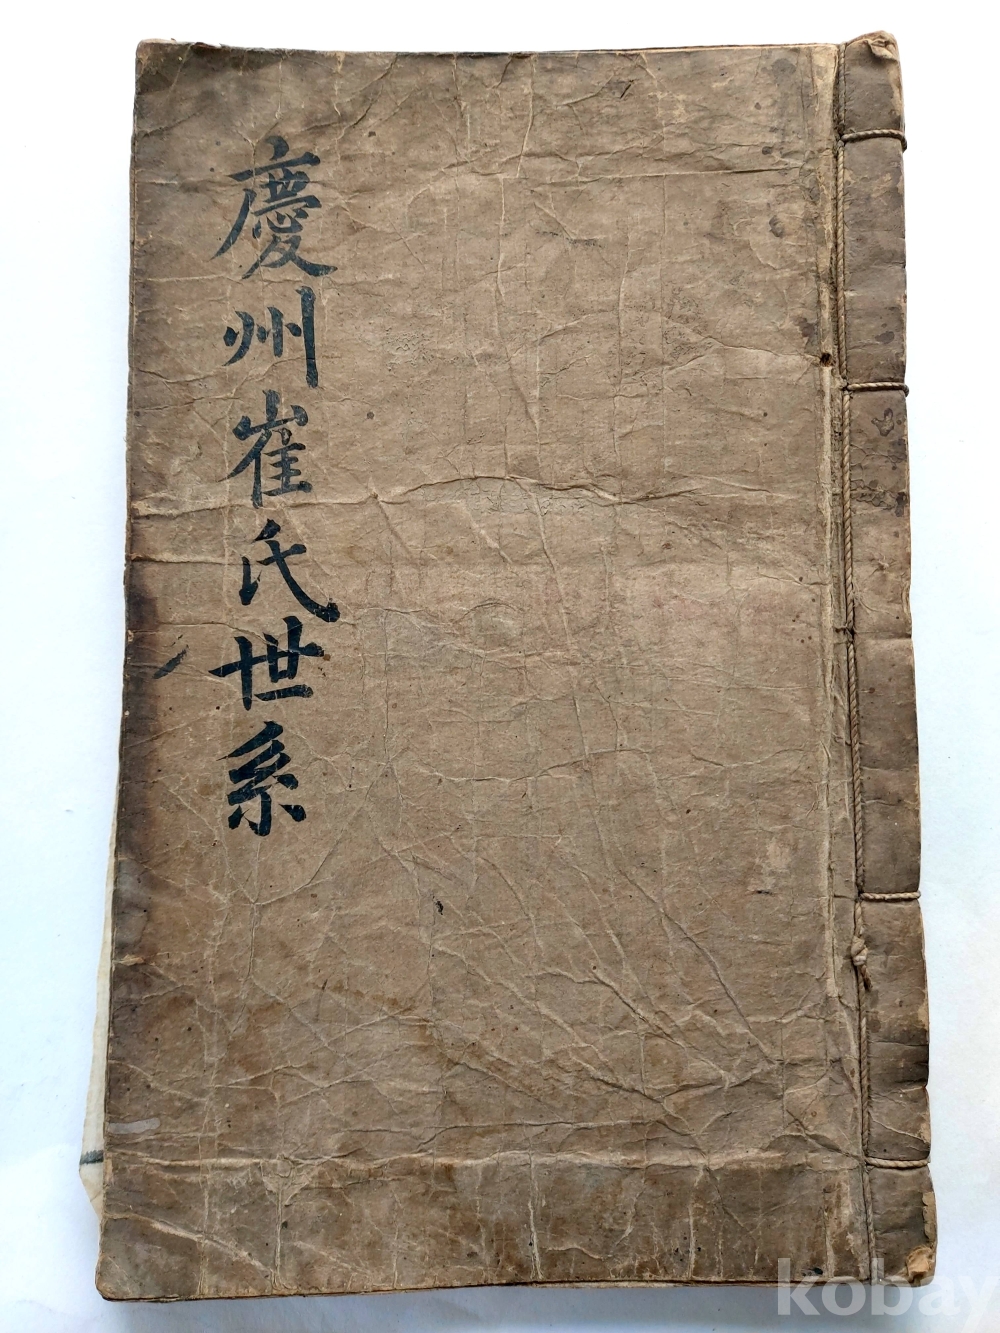 慶州崔氏世系
kobay